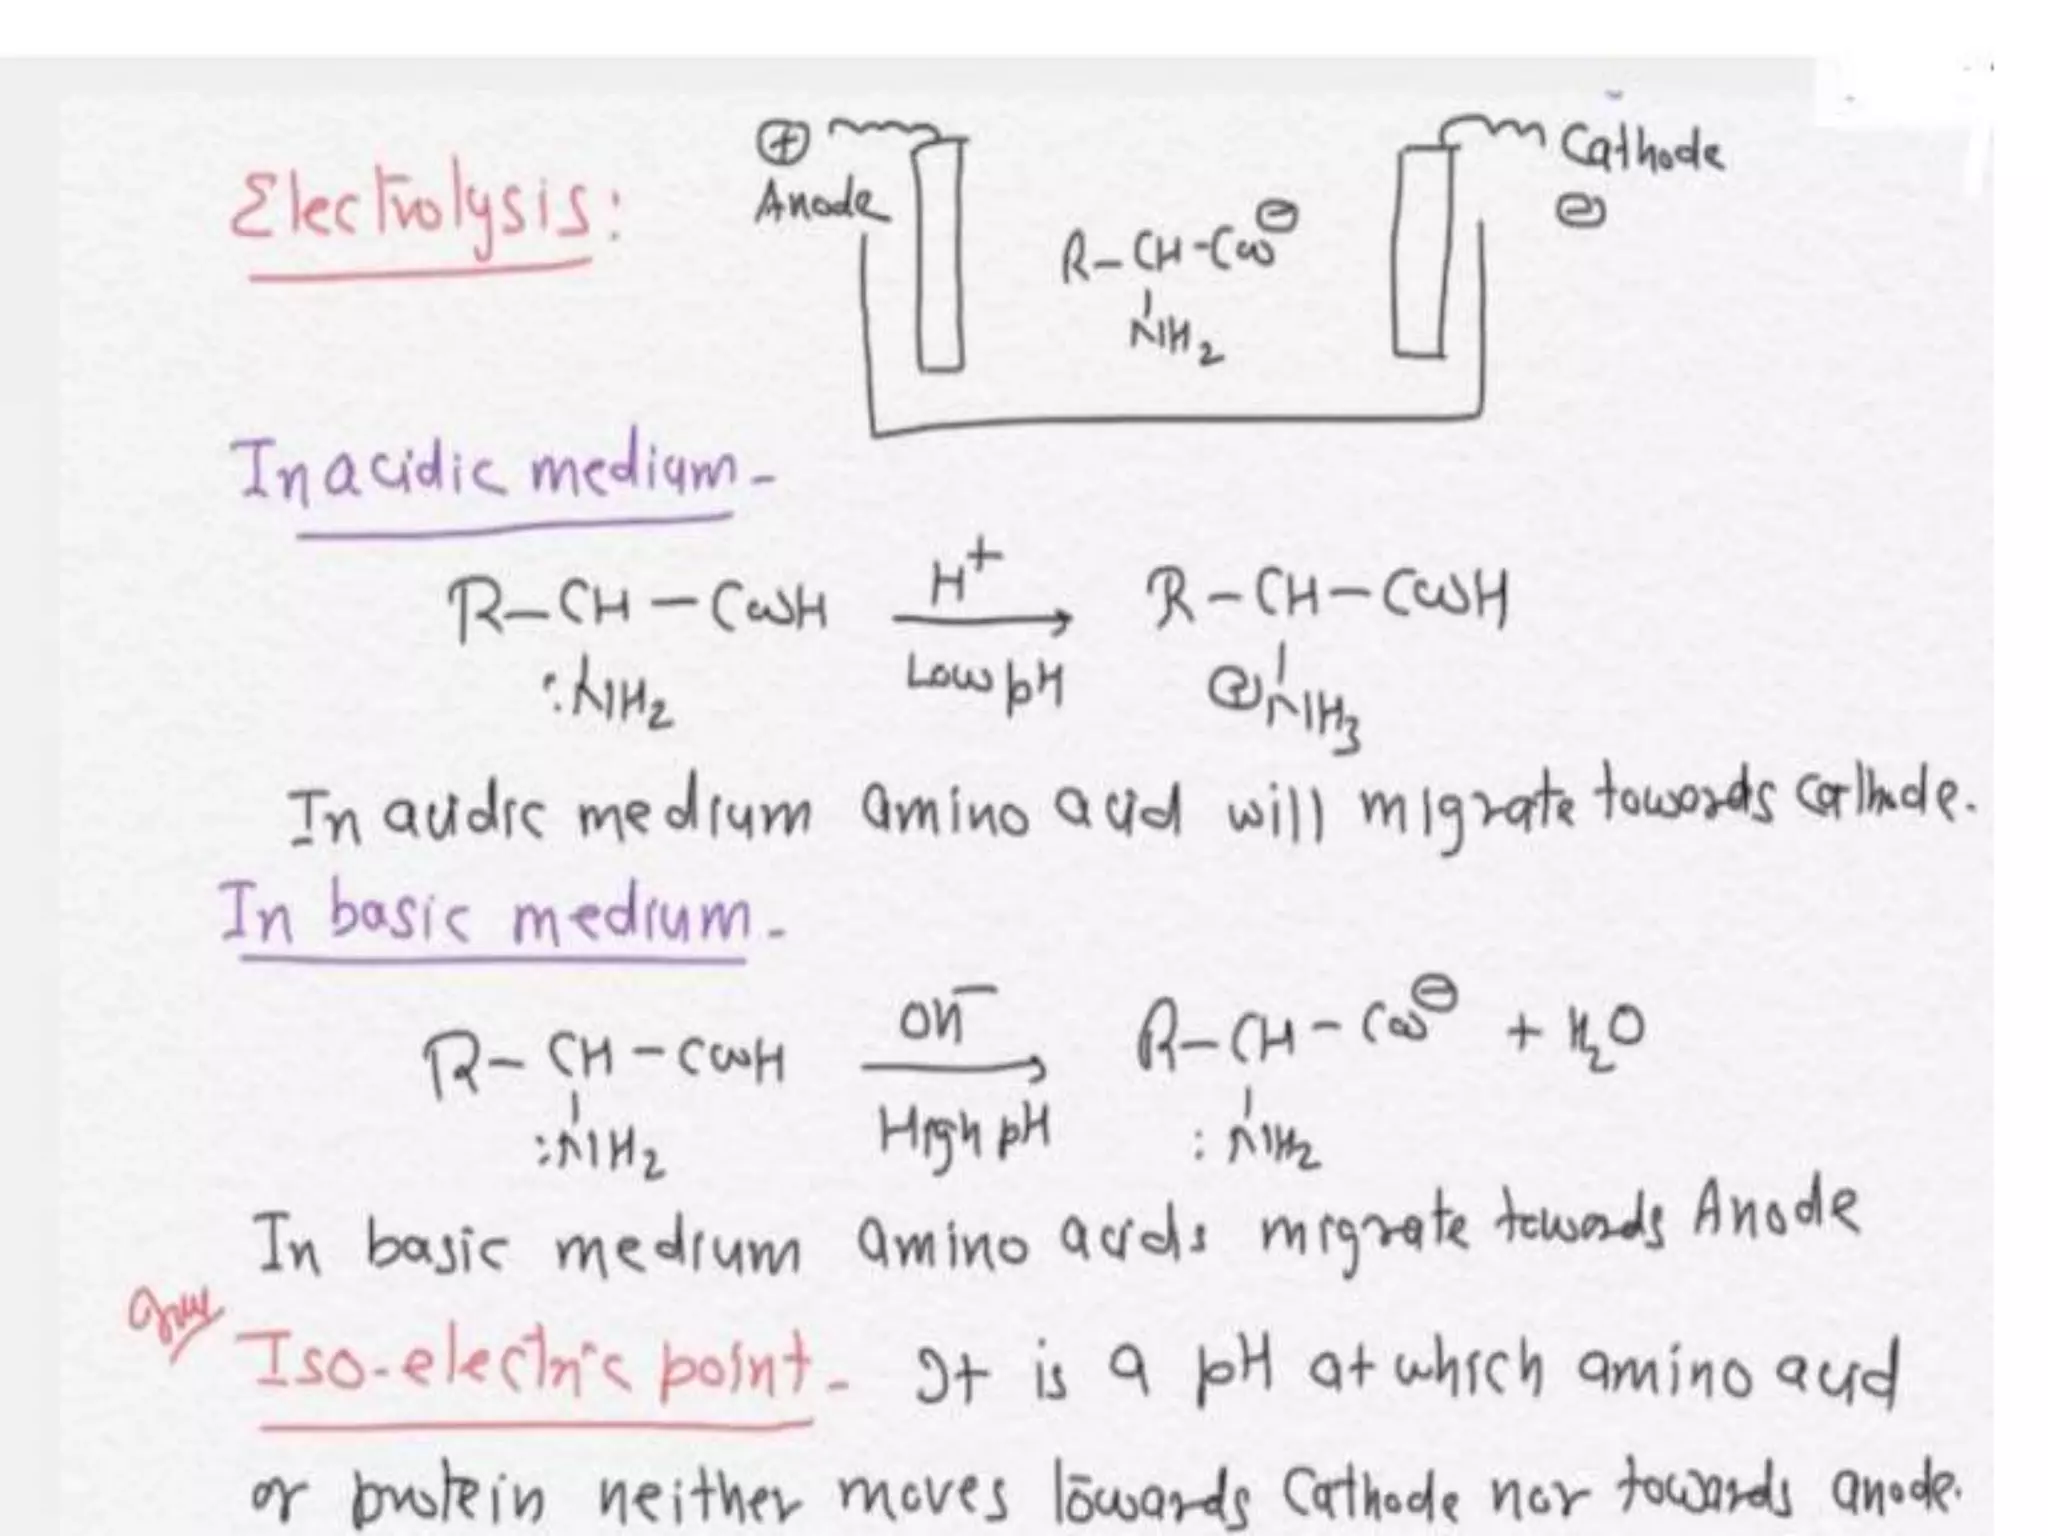 ⊕ Cathode
Electrolysis: Anode ⊖
R-CH-COO⊖
NH2
In acidic medium-
R-CH-COOH H+ R-CH-COOH
:NH2 Low pH ⊕NH3
In acidic medium amino acid will migrate towards cathode.
In basic medium-
R-CH-COOH OH- R-CH-COO⊖ + H2O
:NH2 High pH :NH2
In basic medium amino acids migrate towards Anode
Iso-electric point- It is a pH at which amino acid
or protein neither moves towards cathode nor towards anode.